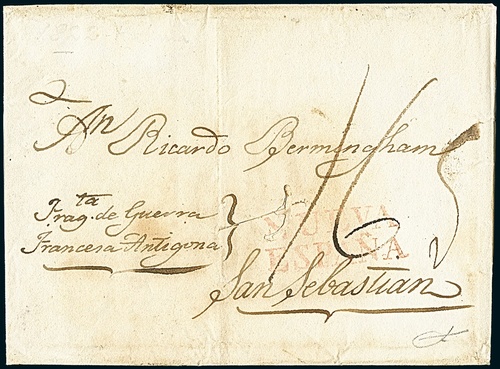 A Dn Ricardo Bermingham
165
Fragta de Guerra
Francesa Antigona
NUEVA
ESPAÑA
San Sebastian